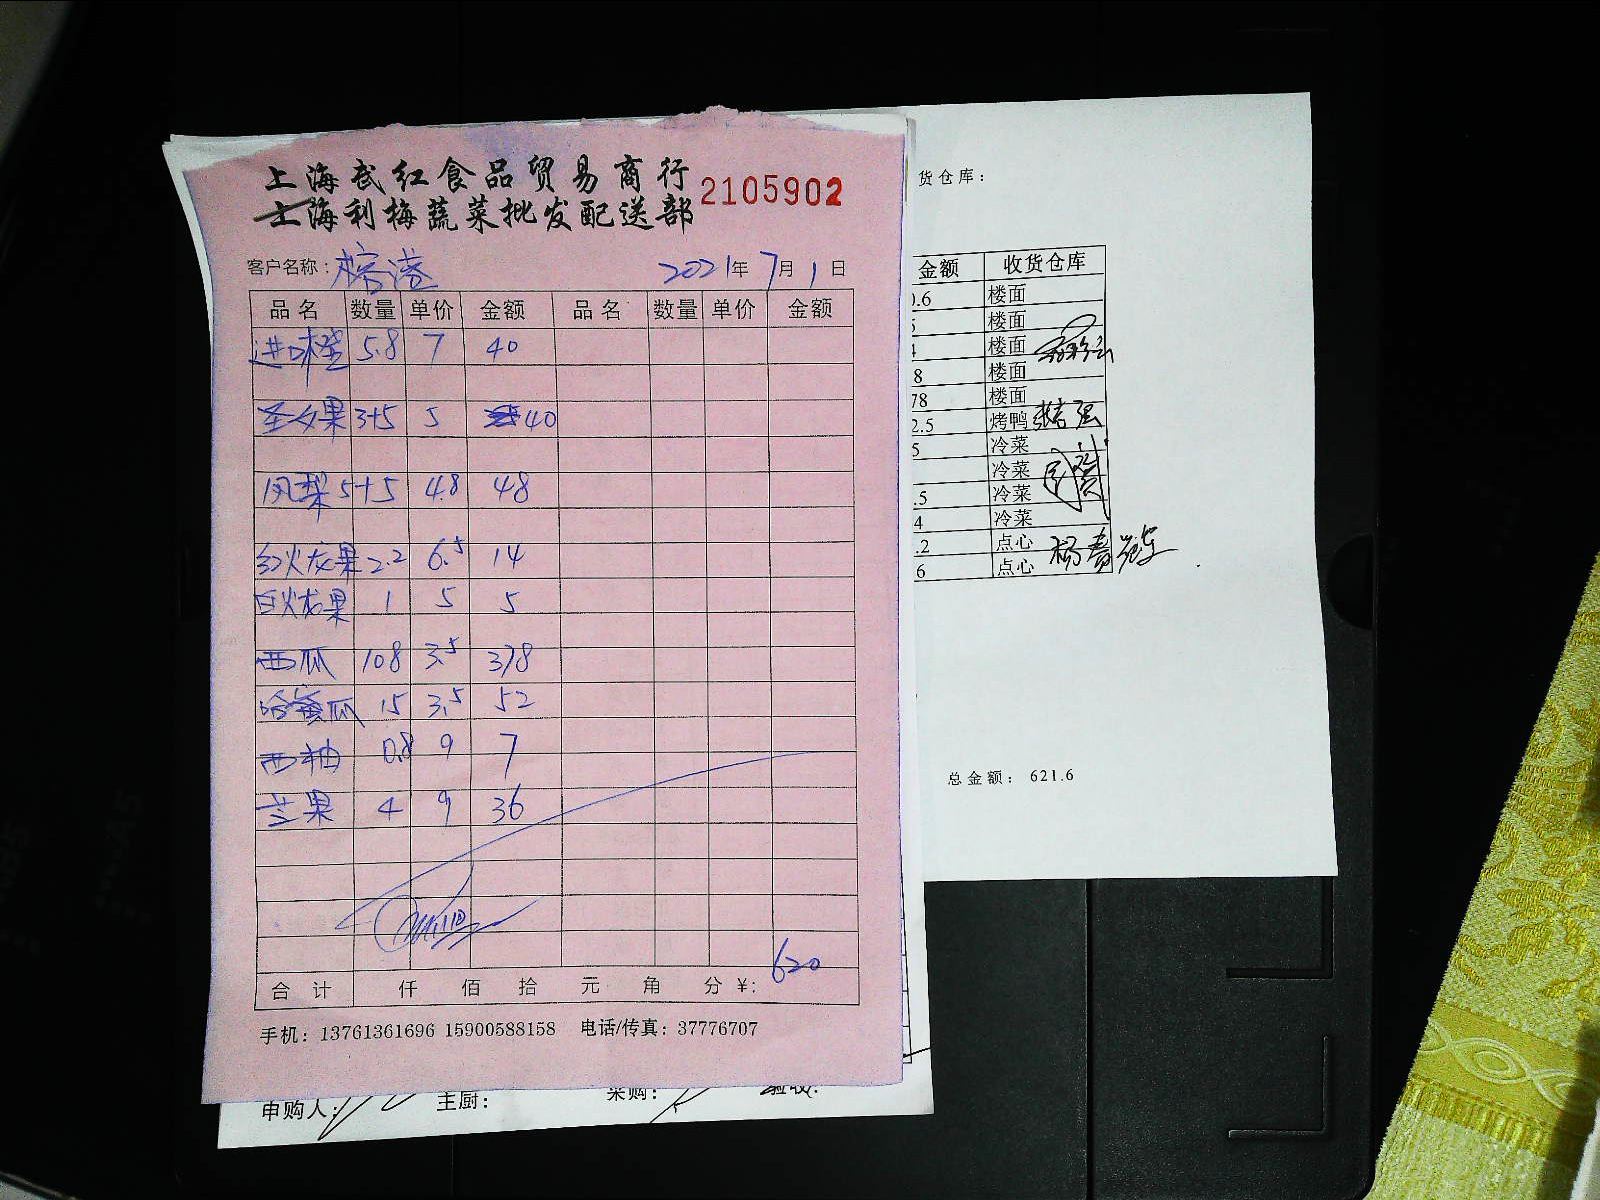 上海武红食品贸易商行
上海利梅蔬菜批发配送部
2105902
客户名称：榕港 2021年7月1日
品名 数量 单价 金额 品名 数量 单价 金额
进口橙 5.8 7 40
圣女果 3+5 5 40
凤梨 5+5 4.8 48
红火龙果 2.2 6.5 14
白火龙果 1 5 5
西瓜 108 3.5 378
哈蜜瓜 15 3.5 52
西柚 0.8 9 7
芒果 4 9 36
合计 仟 佰 拾 元 角 分 ¥: 620
手机：13761361696 15900588158 电话/传真：37776707
申购人： 主厨： 采购： 验收：
货仓库：
金额 收货仓库
0.6 楼面
5 楼面
4 楼面
8 楼面
78 楼面
2.5 烤鸭
5 冷菜
冷菜
.5 冷菜
4 冷菜
.2 点心
6 点心
总金额：621.6